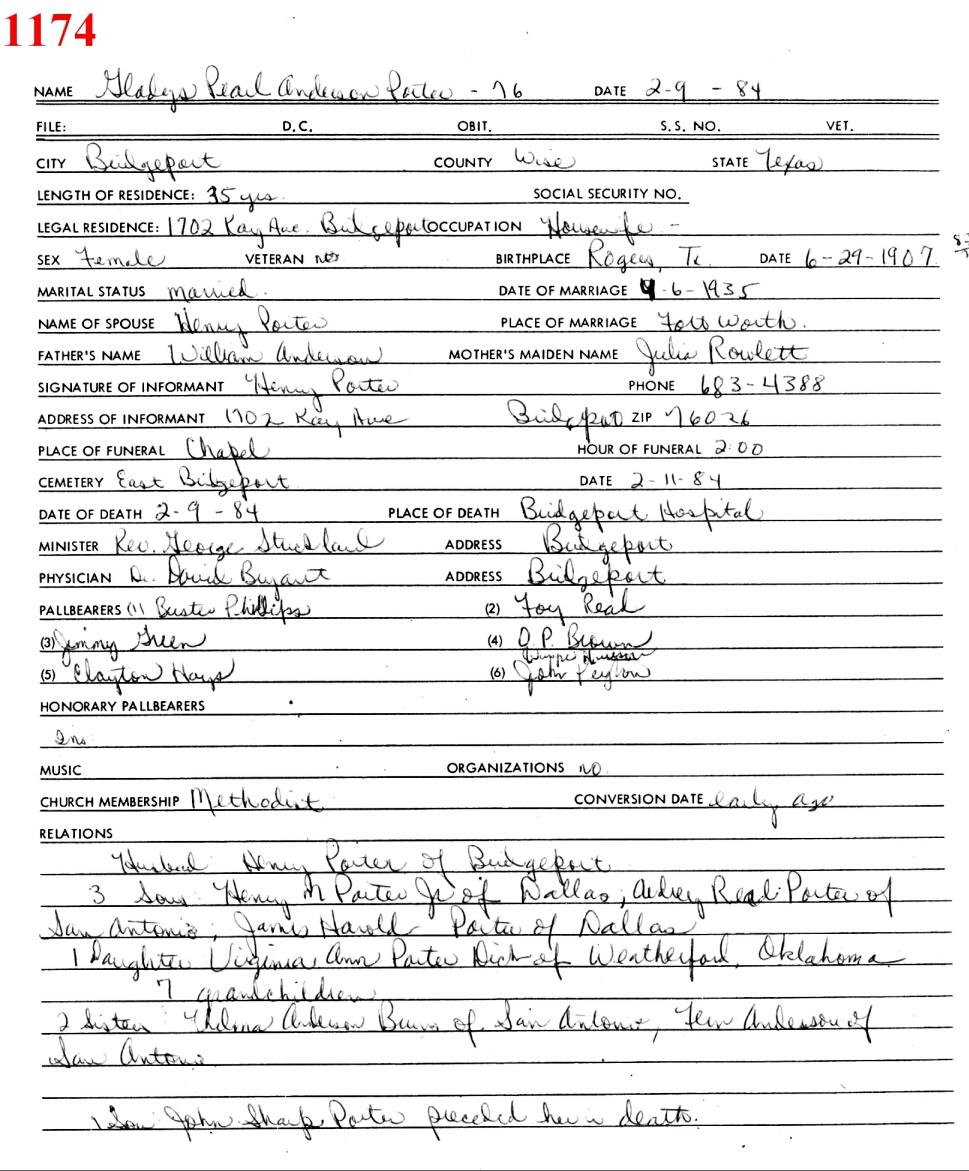 1174
NAME Gladys Pearl Anderson Porter - 76 DATE 2-9-84
FILE: D.C. OBIT. S.S. NO. VET.
CITY Bridgeport COUNTY Wise STATE Texas
LENGTH OF RESIDENCE: 35 yrs. SOCIAL SECURITY NO.
LEGAL RESIDENCE: 1702 Kay Ave. Bridgeport OCCUPATION Housewife -
SEX Female VETERAN no BIRTHPLACE Rogers, Tx. DATE 6-29-1907
MARITAL STATUS married. DATE OF MARRIAGE 4-6-1935
NAME OF SPOUSE Henry Porter PLACE OF MARRIAGE Fort Worth.
FATHER'S NAME William Anderson MOTHER'S MAIDEN NAME Julia Rowlett
SIGNATURE OF INFORMANT Henry Porter PHONE 683-4388
ADDRESS OF INFORMANT 1702 Kay Ave Bridgeport ZIP 76026
PLACE OF FUNERAL Chapel HOUR OF FUNERAL 2:00
CEMETERY East Bridgeport DATE 2-11-84
DATE OF DEATH 2-9-84 PLACE OF DEATH Bridgeport Hospital
MINISTER Rev. George Strickland ADDRESS Bridgeport
PHYSICIAN Dr. David Bryant ADDRESS Bridgeport
PALLBEARERS (1) Buster Phillips (2) Foy Read
(3) Jimmy Green (4) O.P. Brown
(5) Clayton Hays (6) John Peyton
HONORARY PALLBEARERS
Ins
MUSIC ORGANIZATIONS no
CHURCH MEMBERSHIP Methodist CONVERSION DATE early age
RELATIONS
Husband Henry Porter of Bridgeport
3 Sons Henry M Porter Jr of Dallas, Audrey Read Porter of
San Antonio; James Harold Porter of Dallas
1 Daughter Virginia Ann Porter Dick of Weatherford, Oklahoma
7 grandchildren
2 Sisters Thelma Anderson of San Antonio, Fern Anderson of
San Antonio
1 Son John Sharp Porter preceded her in death.